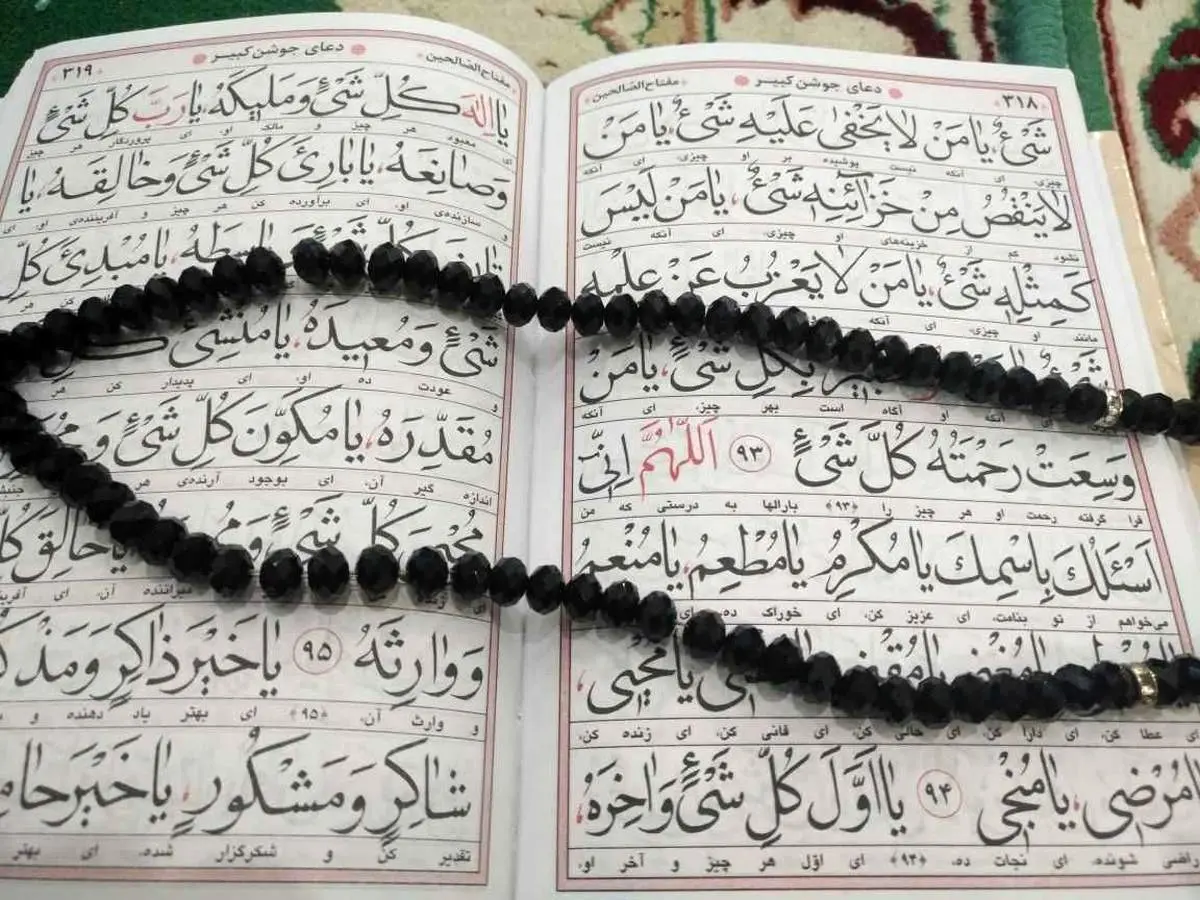 ۳۱۸
دعای جوشن کبیـر
مفتاح‌الصّالحین
شَيْءٌ، يا مَنْ لا يَخْفىٰ عَلَيْهِ شَيْءٌ، يا مَنْ
چیزی، ای آنکه نیست پوشیده بر او چیزی، ای آنکه
لا يَنْقُصُ مِنْ خَزآئِنِهِ شَيْءٌ، يا مَنْ لَيْسَ
نشود کم از خزینه‌های او چیزی، ای آنکه نیست
كَمِثْلِهِ شَيْءٌ، يا مَنْ لا يَعْزُبُ عَنْ عِلْمِهِ
مانند او چیزی، ای آنکه
بِكُلِّ شَيْءٍ، يا مَنْ
آنکه او آگاه است بهر چیز، ای آنکه
وَسِعَتْ رَحْمَتُهُ كُلَّ شَيْءٍ ۹۳ اَللّٰهُمَّ اِنّى
فرا گرفته رحمت او هر چیز را ﴿۹۳﴾ بارالها به درستی که من
اَسْئَلُكَ بِاسْمِكَ يا مُكْرِمُ يا مُطْعِمُ، يا مُنْعِمُ
می‌خواهم از تو بنامت، ای عزیز کن، ای خوراک ده، ای
يا مُحْيى،
ای عطا کن، ای دارا کن، ای کن، ای فانی کن، ای زنده کن،
يا مُرْضى، يا مُنْجى ۹۴ يا اَوَّلَ كُلِّ شَيْءٍ وَ اٰخِرَهُ،
راضی شونده، ای نجات ده، ﴿۹۴﴾ ای اوّل هر چیز و آخر او،
۳۱۹
دعای جوشن کبیـر
مفتاح‌الصّالحین
يا اِلٰهَ كُلِّ شَيْءٍ وَ مَليكَهُ، يا رَبَّ كُلِّ شَيْءٍ
ای معبود هر چیز و مالک او، ای پروردگار هر چیز
وَ صانِعَهُ، يا بارِئَ كُلِّ شَيْءٍ وَ خالِقَهُ، يا
و سازنده‌ی او، ای برآورده کن هر چیز و آفریننده‌ی او، ای
يا مُبْدِئَ كُلِّ
کن هر
شَيْءٍ وَ مُعيدَهُ، يا مُنْشِئَ
و عودت ده او، ای پدیدار کن هر
مُقَدِّرَهُ، يا مُكَوِّنَ كُلِّ شَيْءٍ وَ
اندازه گیر آن، ای بوجود آرنده‌ی هر
كُلِّ شَيْءٍ وَ يا خالِقَ
میراننده آن، ای
وَ وارِثَهُ ۹۵ يا خَيْرَ ذاكِرٍ وَ
و وارث آن، ﴿۹۵﴾ ای بهتر یاد دهنده و
شاكِرٍ وَ مَشْكُورٍ، يا خَيْرَ
تقدیر کن و شکرگزار شده، ای بهتر